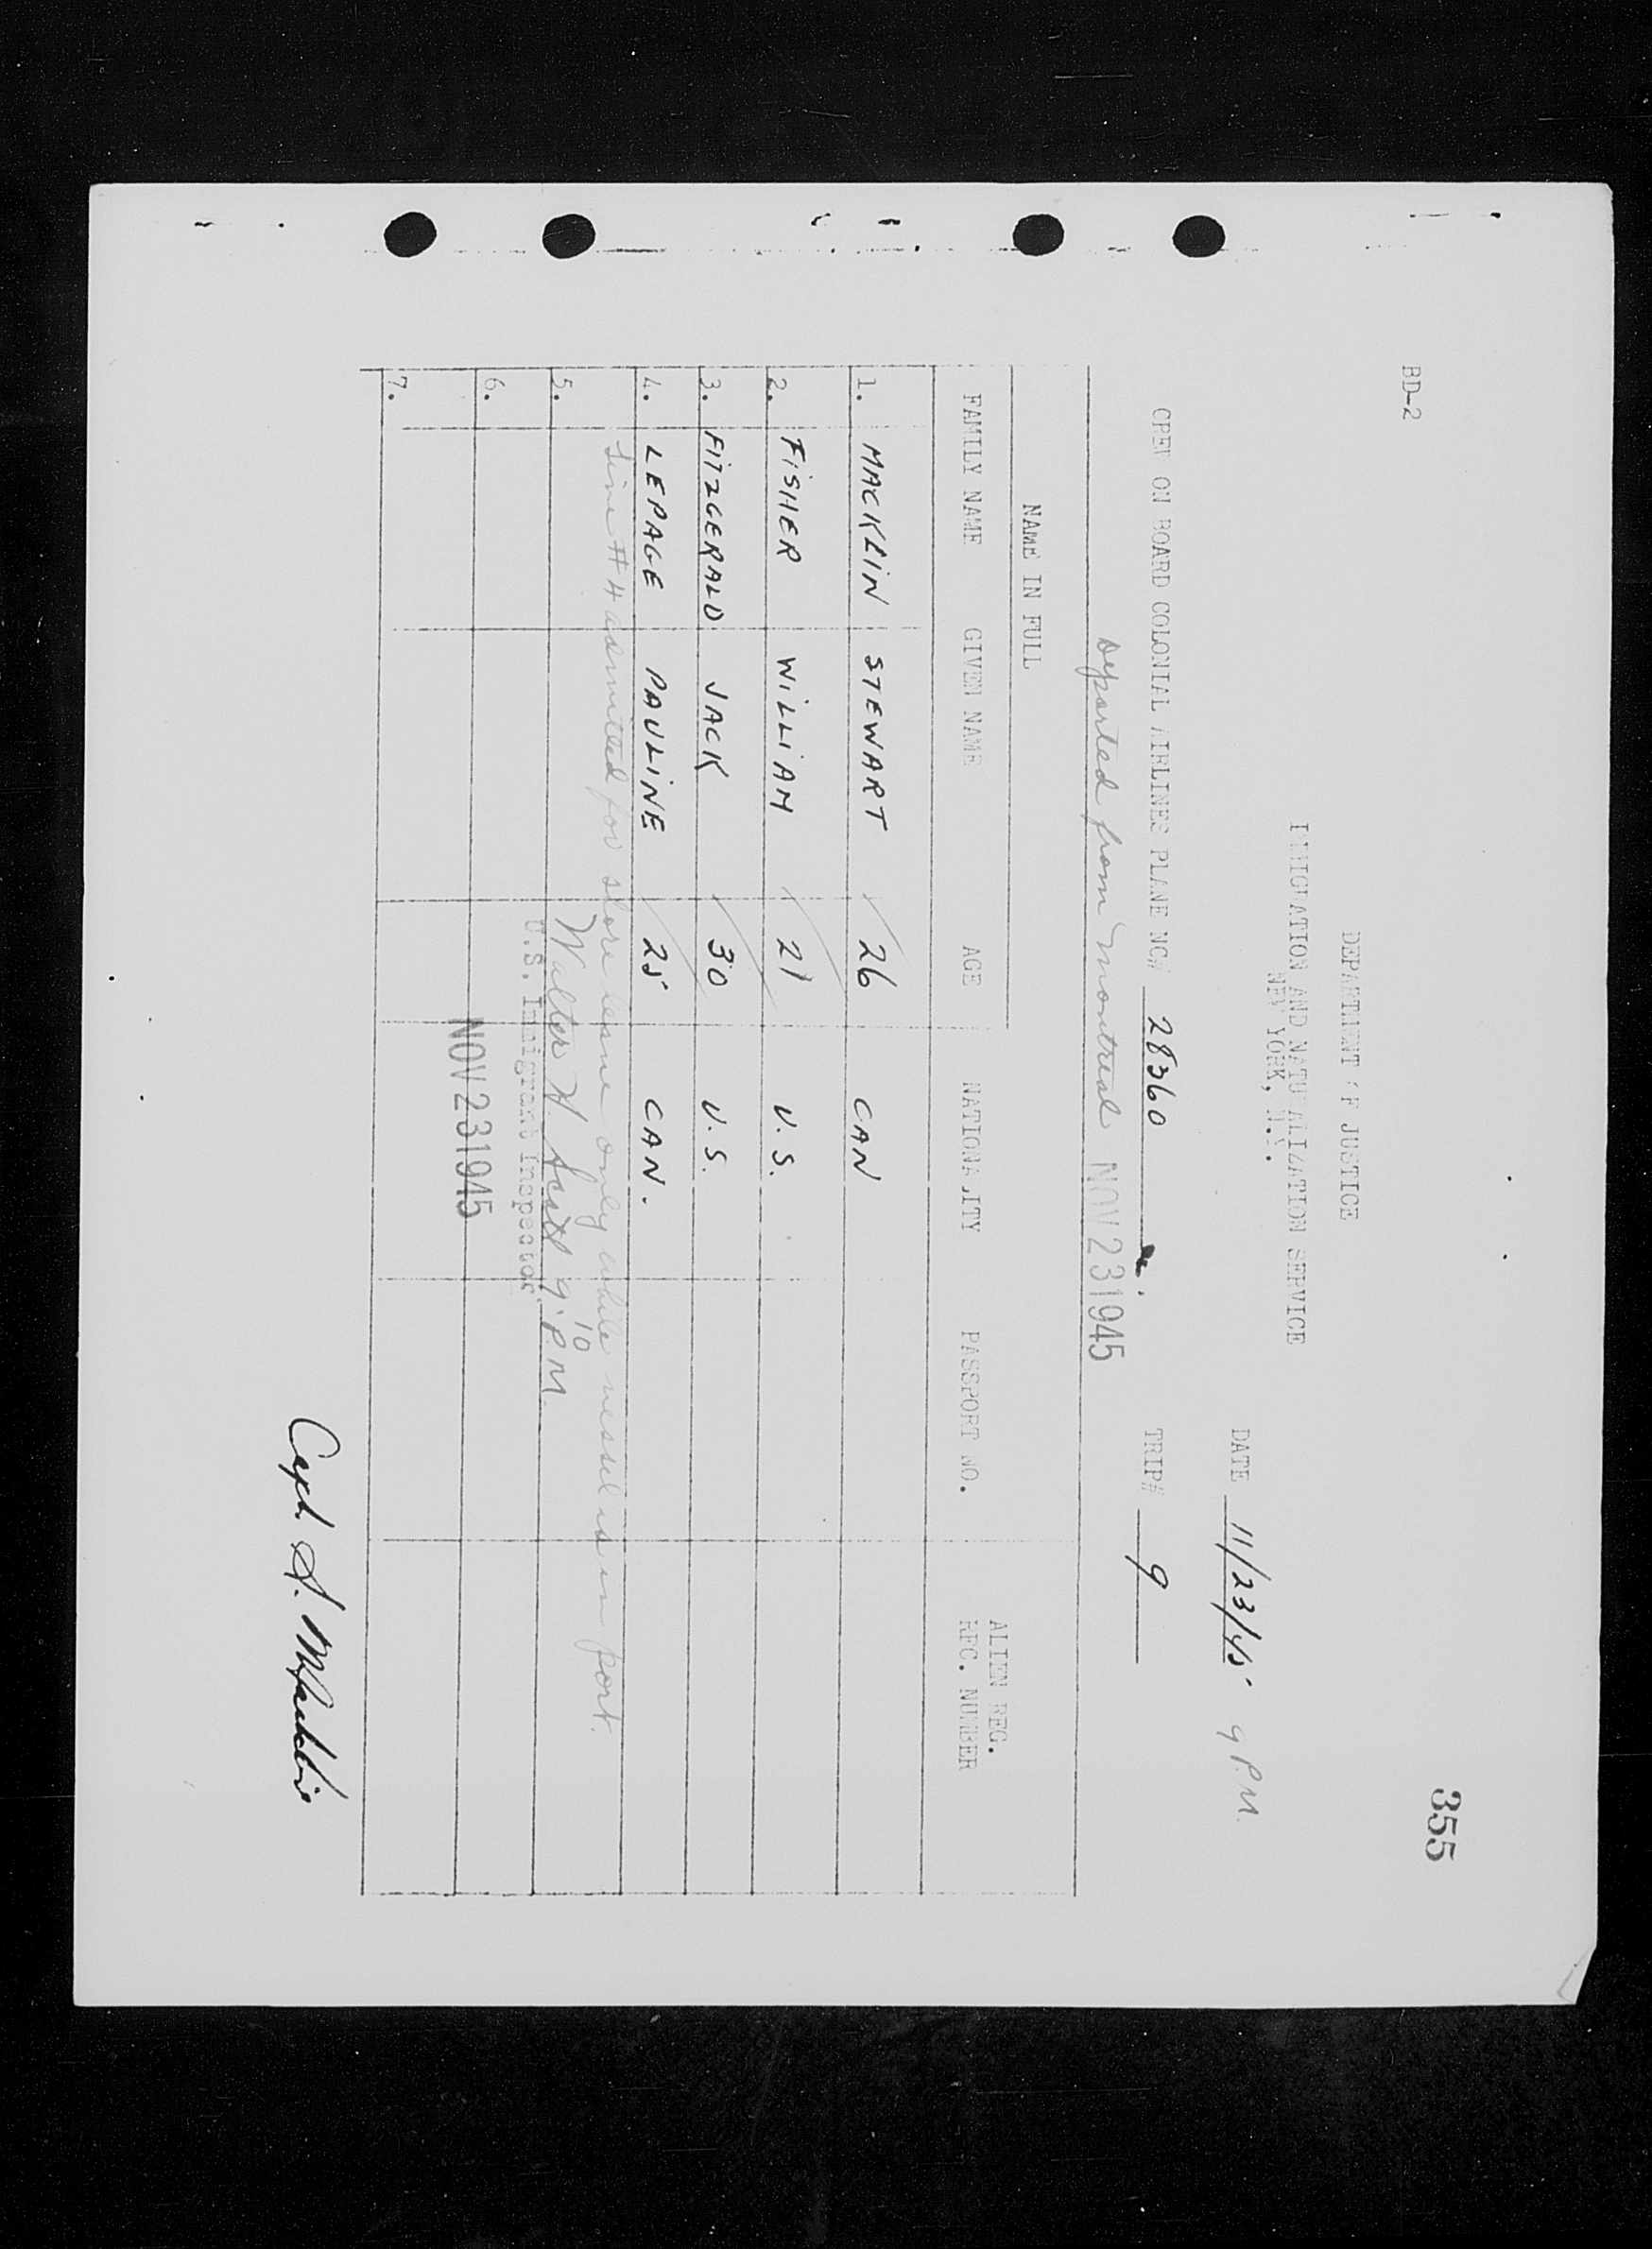 355
BD-2
DEPARTMENT OF JUSTICE
IMMIGRATION AND NATURALIZATION SERVICE
NEW YORK, N.Y.
DATE 11/23/45 9 P.M.
CREW ON BOARD COLONIAL AIRLINES PLANE NC# 28360 TRIP# 9
Departed from Montreal NOV 23 1945
NAME IN FULL
ALIEN REG.
FAMILY NAME GIVEN NAME AGE NATIONALITY PASSPORT NO. REC. NUMBER
1. MACKLIN STEWART 26 CAN
2. FISHER WILLIAM 21 U.S.
3. FITZGERALD JACK 30 U.S.
4. LEPAGE PAULINE 25 CAN.
Line # 4 admitted for shore leave only while vessel is in port.
5. Walter H Scott 9:10 P.M.
U.S. Immigrant Inspector
6. NOV 23 1945
7.
Capt. S. Macklin